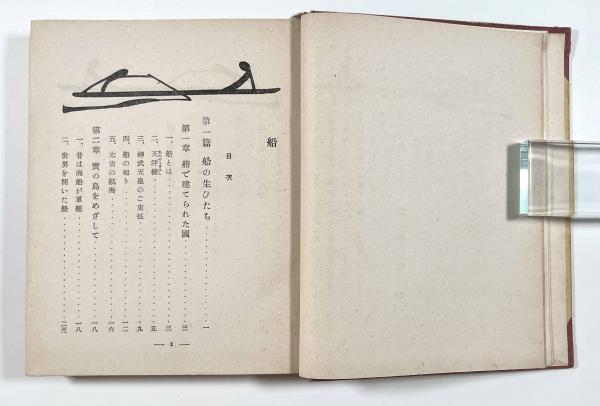 船
目次
第一篇 船の生ひたち………一
第一章 船で建てられた國………三
一、船とは………三
二、天浮橋………五
三、神武天皇のご東征………九
四、船の帰り………一二
五、太古の航海………一六
第二章 寶の島をめざして………一八
一、昔は商船が軍艦………一八
二、世界を開いた船………二三
— 1 —